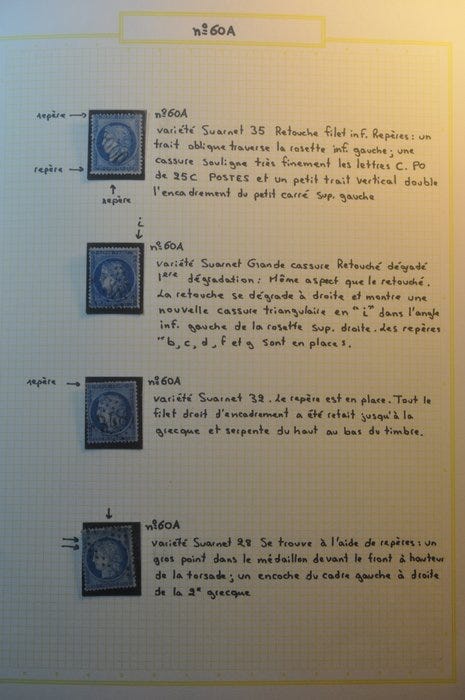 n° 60A
repère →
repère →
↑
repère
n° 60A
variété Suarnet 35 Retouche filet inf. Repères : un
trait oblique traverse la rosette inf. gauche ; une
cassure souligne très finement les lettres C. PO
de 25C POSTES et un petit trait vertical double
l'encadrement du petit carré sup. gauche
i
↓
n° 60A
variété Suarnet Grande cassure Retouché dégradé
1ere dégradation : Même aspect que le retouché.
La retouche se dégrade à droite et montre une
nouvelle cassure triangulaire en "i" dans l'angle
inf. gauche de la rosette sup. droite. Les repères
"b, c, d, f et g sont en places.
repère →
n° 60A
variété Suarnet 32. Le repère est en place. Tout le
filet droit d'encadrement a été refait jusqu'à la
grecque et serpente du haut au bas du timbre.
↓
n° 60A
variété Suarnet 28 Se trouve à l'aide de repères : un
gros point dans le médaillon devant le front à hauteur
de la torsade ; un encoche du cadre gauche à droite
de la 2e grecque